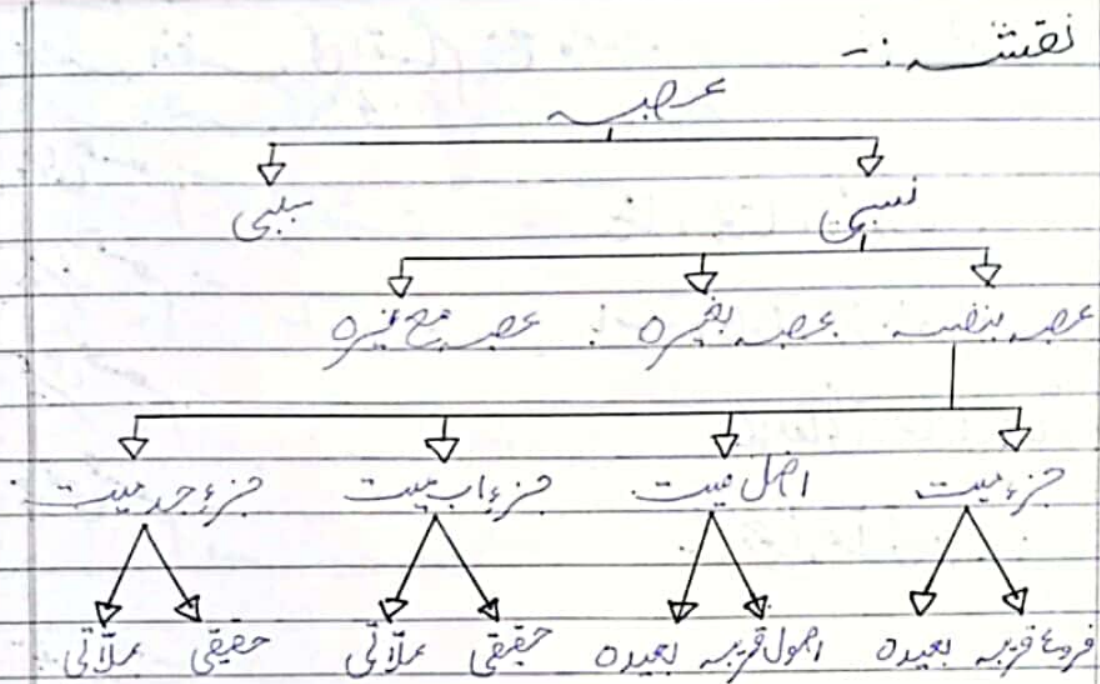 نقشہ :-
عصبہ
نسبی سببی
عصبہ بنفسہ عصبہ بغیرہ عصبہ مع غیرہ
جزء میت اصل میت جزء اب میت جزء جد میت
فروع قریبہ بعیدہ اصول قریبہ بعیدہ حقیقی علّاتی حقیقی علّاتی